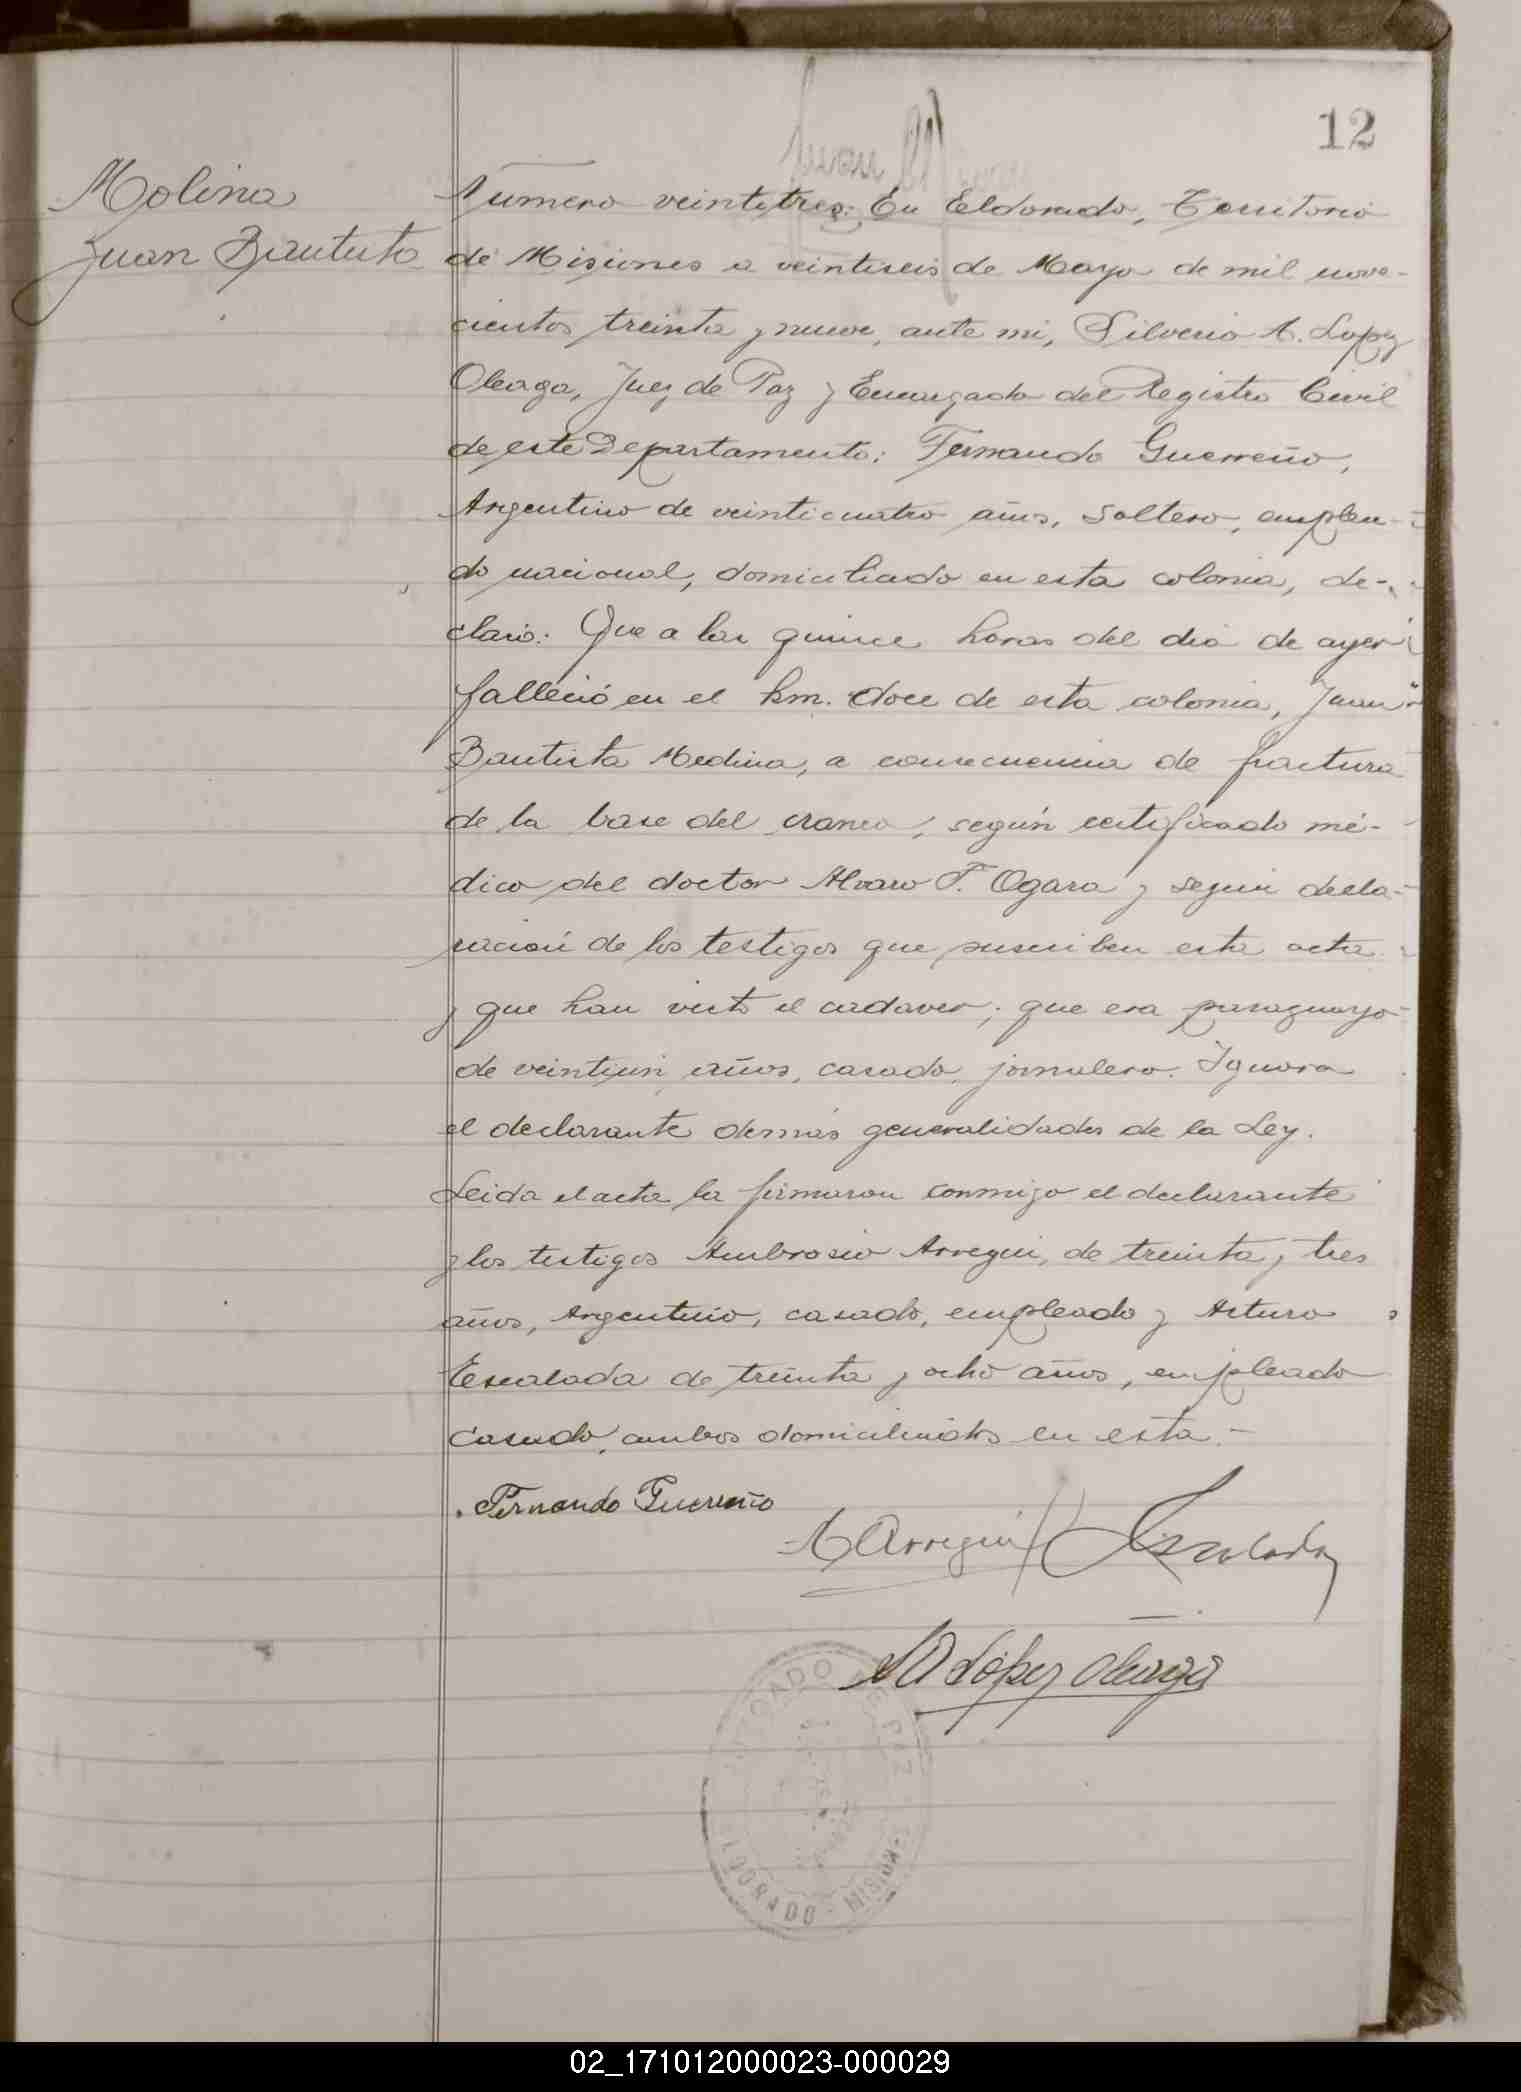 12
Molina
Juan Bautista
Número veintitres: En Eldorado, Territorio
de Misiones a veintiseis de Mayo de mil nove-
cientos treinta y nueve, ante mi, Silverio A. Lopez
Oleaga, Juez de Paz y Encargado del Registro Civil
de este Departamento: Fernando Guerreño,
Argentino de veinticuatro años, soltero, emplea-
do nacional, domiciliado en esta colonia, de-
claró: Que a las quince horas del dia de ayer
falleció en el km. doce de esta colonia, Juan
Bautista Medina, a consecuencia de fractura
de la base del craneo, según certificado mé-
dico del doctor Alvaro F. Ogara y según decla-
ración de los testigos que suscriben esta acta
y que han visto el cadaver; que era paraguayo
de veintiun años, casado, jornalero. Ignora
el declarante demás generalidades de la Ley.
Leida el acta la firmaron conmigo el declarante
y los testigos Ambrosio Arregui, de treinta y tres
años, Argentino, casado, empleado y Arturo
Escalada de treinta y ocho años, empleado
casado, ambos domiciliados en esta.-
Fernando Guerreño
A Arregui
Escalada
SA López Oleaga
JUZGADO DE PAZ
ELDORADO - MISIONES
02_171012000023-000029